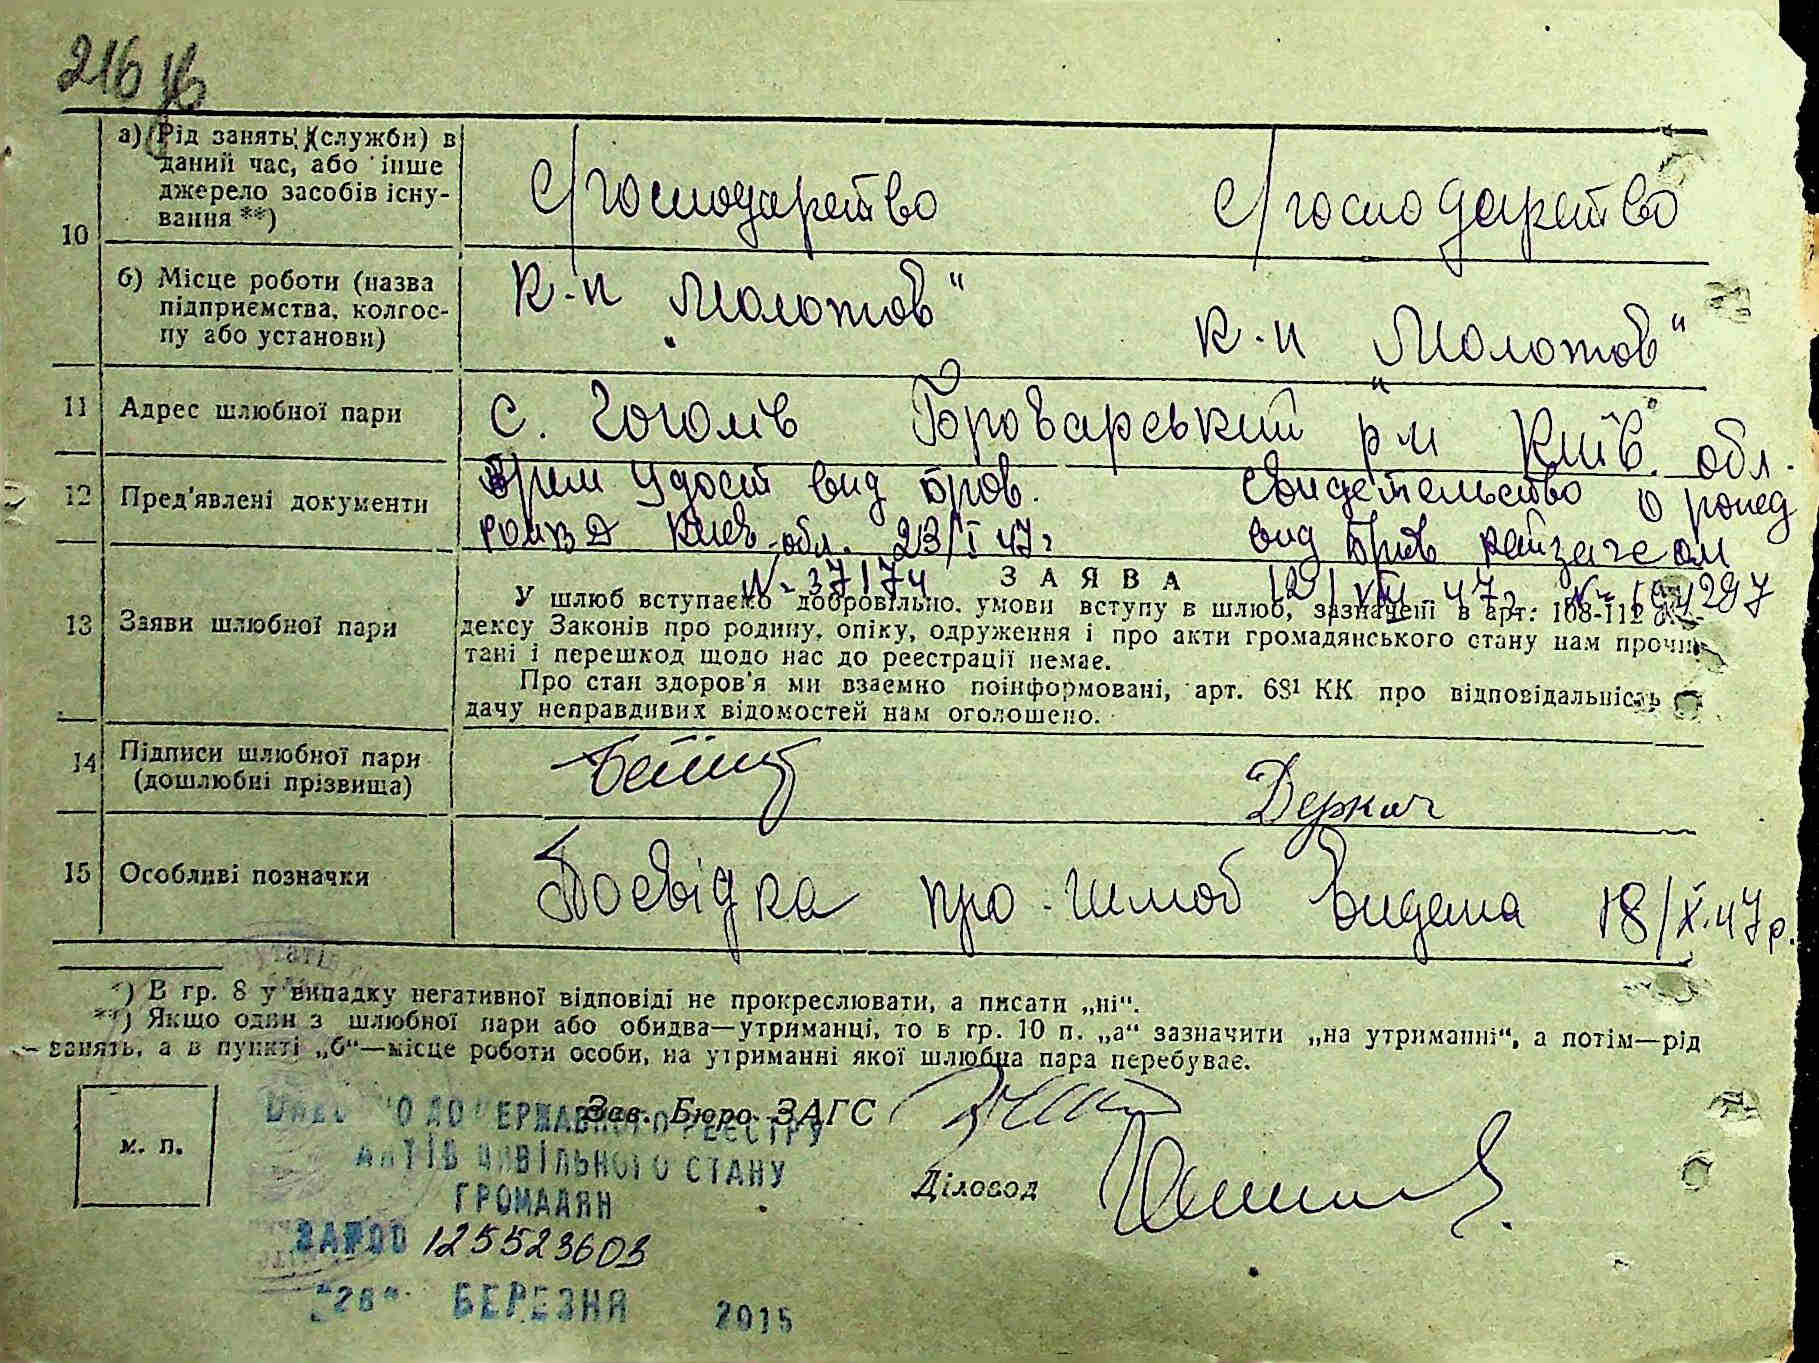 216
10
а) Рід занять (служби) в
даний час, або інше
джерело засобів існу-
вання **)
с/господарство
с/господарство
б) Місце роботи (назва
підприємства, колгос-
пу або установи)
К-п "Молотов"
К-п "Молотов"
11 Адрес шлюбної пари
с. Гоголів Броварський р-н Київ. обл.
12 Пред'явлені документи
Врем удост вид Бров.
РОМВД Киев. обл. 23/I 47г
№ 37174
Свидетельство о рожд
вид Бров райзагсом
12/VIII 47г №
13 Заяви шлюбної пари
ЗАЯВА
У шлюб вступаємо добровільно. умови вступу в шлюб, зазначені в арт: 108-112
дексу Законів про родину, опіку, одруження і про акти громадянського стану нам прочи-
тані і перешкод щодо нас до реєстрації немає.
Про стан здоров'я ми взаємно поінформовані, арт. 68¹ КК про відповідальність
дачу неправдивих відомостей нам оголошено.
14 Підписи шлюбної пари
(дошлюбні прізвища)
Деркач
15 Особливі позначки
Посвідка про шлюб видана 18/X.47р.
*) В гр. 8 у випадку негативної відповіді не прокреслювати, а писати „ні".
**) Якщо один з шлюбної пари або обидва—утриманці, то в гр. 10 п. „а" зазначити „на утриманні", а потім—рід
занять, а в пункті „б"—місце роботи особи, на утриманні якої шлюбна пара перебуває.
м. п.
Зав. Бюро ЗАГС
Діловод
ВНЕСЕНО ДО ДЕРЖАВНОГО РЕЄСТРУ
АКТІВ ЦИВІЛЬНОГО СТАНУ
ГРОМАДЯН
ЗА №00 125523603
"26" БЕРЕЗНЯ 2015